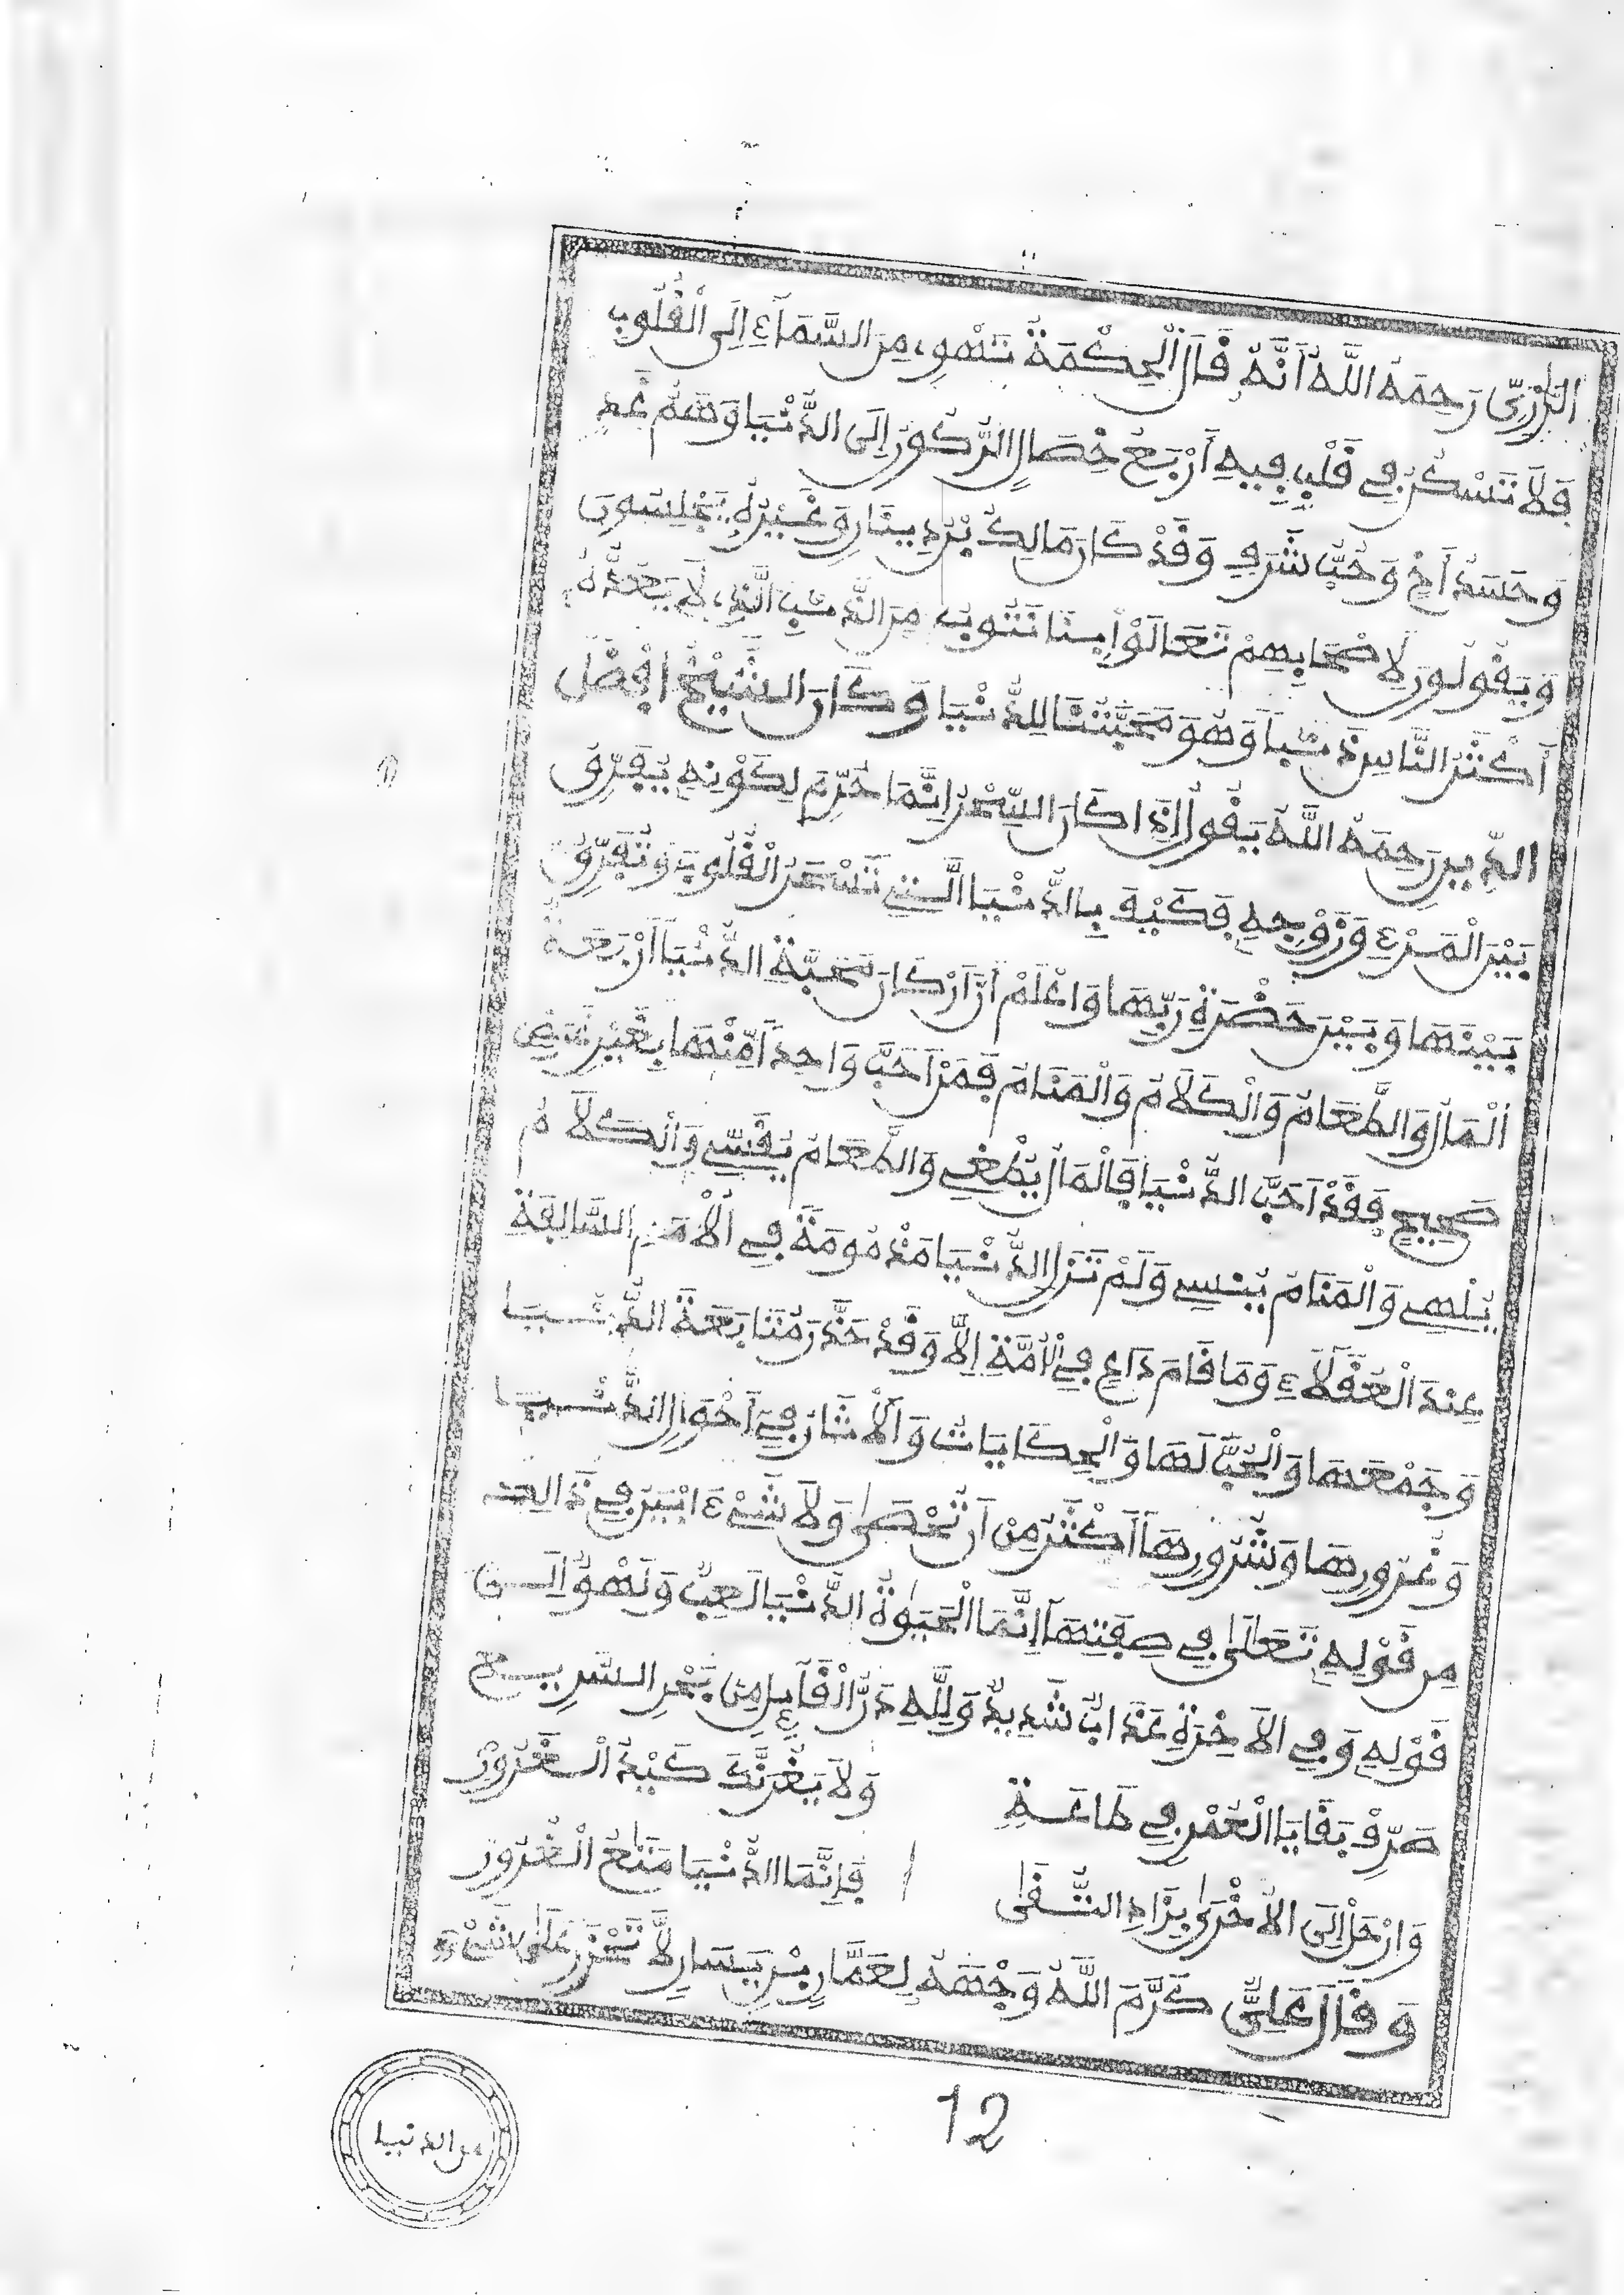 الرَّازِيِّ رَحِمَهُ اللَّهُ أَنَّهُ قَالَ الْحِكْمَةُ تَهْوِي مِنَ السَّمَاءِ إِلَى الْقُلُوبِ
فَلَا تَسْكُنُ فِي قَلْبٍ فِيهِ أَرْبَعُ خِصَالٍ الرُّكُونُ إِلَى الدُّنْيَا وَهَمُّ غَدٍ
وَحَسَدُ أَخٍ وَحُبُّ شَرَفٍ وَقَدْ كَانَ مَالِكُ بْنُ دِينَارٍ وَغَيْرُهُ يَجْلِسُونَ
وَيَقُولُونَ لِأَصْحَابِهِمْ تَعَالَوْا بِنَا نَتُوبُ مِنَ الذَّنْبِ الَّذِي لَا يَعُدُّهُ
أَكْثَرُ النَّاسِ ذَنْباً وَهُوَ مَحَبَّتُنَا لِلدُّنْيَا وَكَانَ الشَّيْخُ أَفْضَلُ
الدِّينِ رَحِمَهُ اللَّهُ يَقُولُ إِذَا كَانَ السِّحْرُ إِنَّمَا حُرِّمَ لِكَوْنِهِ يُفَرِّقُ
بَيْنَ الْمَرْءِ وَزَوْجِهِ فَكَيْفَ بِالدُّنْيَا الَّتِي تَسْحَرُ الْقُلُوبَ وَتُفَرِّقُ
بَيْنَهَا وَبَيْنَ حَضْرَةِ رَبِّهَا وَاعْلَمْ أَنَّ أَرْكَانَ مَحَبَّةِ الدُّنْيَا أَرْبَعَةٌ
الْمَالُ وَالطَّعَامُ وَالْكَلَامُ وَالْمَنَامُ فَمَنْ أَحَبَّ وَاحِداً مِّنْهَا بِغَيْرِ غَرَضٍ
صَحِيحٍ فَقَدْ أَحَبَّ الدُّنْيَا فَالْمَالُ يُطْغِي وَالطَّعَامُ يُقَسِّي وَالْكَلَامُ
يُلْهِي وَالْمَنَامُ يُنْسِي وَلَمْ تَزَلِ الدُّنْيَا مَذْمُومَةً فِي الْأُمَمِ السَّالِفَةِ
عِنْدَ الْعُقَلَاءِ وَمَا قَامَ دَاعٍ فِي الْأُمَّةِ إِلَّا وَقَدْ حَذَّرَ مُتَابَعَةَ الدُّنْيَا
وَجَمْعَهَا وَالْحُبَّ لَهَا وَالْحِكَايَاتُ وَالْآثَارُ فِي أَحْوَالِ الدُّنْيَا
وَغُرُورِهَا وَشُرُورِهَا أَكْثَرُ مِنْ أَنْ تُحْصَى وَلَا شَيْءَ ابْيَنَ فِي ذَالِكَ
مِن قَوْلِهِ تَعَالَى فِي صِفَتِهَا إِنَّمَا الْحَيَوٰةُ الدُّنْيَا لَعِبٌ وَلَهْوٌ إِلَى
قَوْلِهِ وَفِي الْآخِرَةِ عَذَابٌ شَدِيدٌ وَلِلَّهِ دَرُّ الْقَائِلِ مِن بَحْرِ السَّرِيعِ
صَرِّفْ بَقَايَا الْعُمْرِ فِي طَاعَةِ وَلَا يَغُرَّنَّكَ كَيْدُ الْغَرُورْ
وَارْحَلْ إِلَى الْأُخْرَى بِزَادِ التُّقَى فَإِنَّمَا الدُّنْيَا مَتَاعُ الْغُرُورْ
وَقَالَ عَلِيٌّ كَرَّمَ اللَّهُ وَجْهَهُ لِعَمَّارِ بْنِ يَسَارٍ لَا تَحْزَنْ عَلَى شَيْءٍ
12
من الدنيا